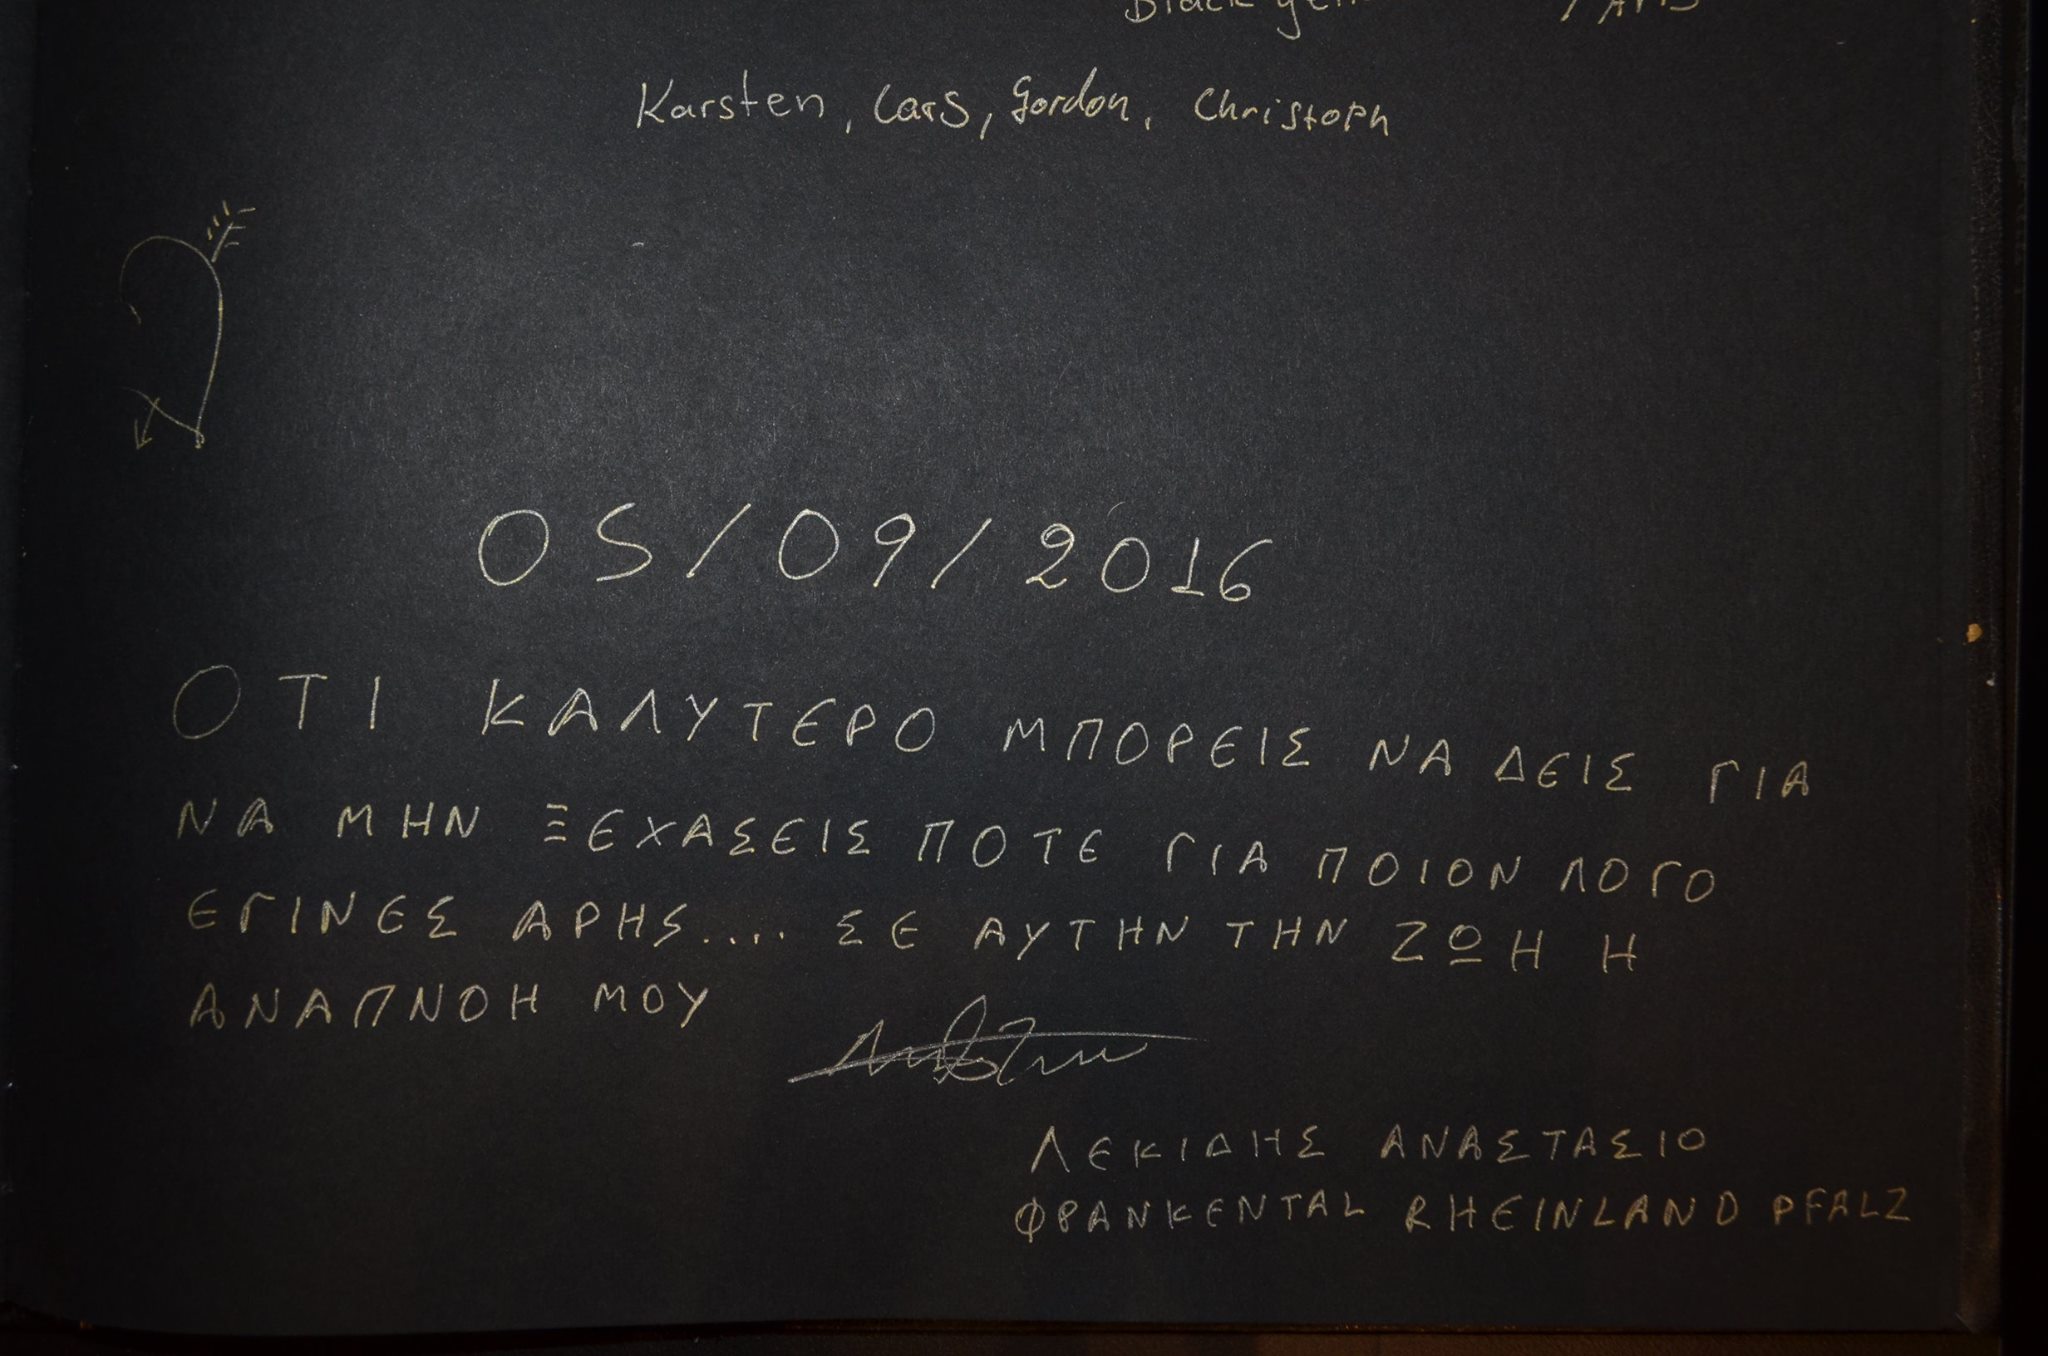 Karsten, Lars, Gordon, Christoph
05/09/2016
ΟΤΙ ΚΑΛΥΤΕΡΟ ΜΠΟΡΕΙΣ ΝΑ ΔΕΙΣ ΓΙΑ
ΝΑ ΜΗΝ ΞΕΧΑΣΕΙΣ ΠΟΤΕ ΓΙΑ ΠΟΙΟΝ ΛΟΓΟ
ΕΓΙΝΕΣ ΑΡΗΣ.... ΣΕ ΑΥΤΗΝ ΤΗΝ ΖΩΗ Η
ΑΝΑΠΝΟΗ ΜΟΥ
ΛΕΚΙΔΗΣ ΑΝΑΣΤΑΣΙΟ
ΦΡΑΝΚΕΝTAL RHEINLAND PFALZ